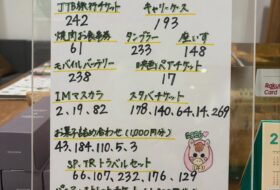 JTB旅行チケット キャリーケース
242 193
焼肉お食事券 タンブラー 座いす
61 233 148
モバイルバッテリー 映画ペアチケット
238 17
IMマスカラ スタバチケット
2.19.82 178.140.64.14.269
お菓子詰め合わせ(1,000円分)
43.184.110.5.3
SP.TRトラベルセット
66.107.232.176.129
Card
2